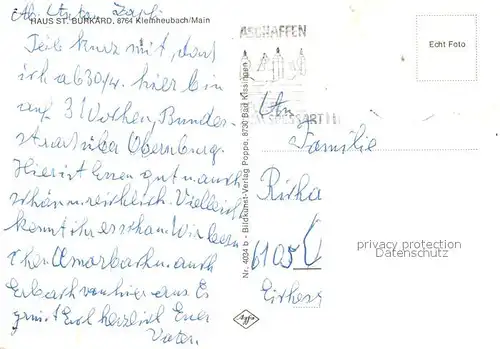 HAUS ST. BURKARD, 8764 Kleinheubach/Main
Teile kurz mit, dass
ich ab 30/4. hier bin
auf 3 Wochen, Bundes-
strasse über Obernburg.
Hier ist Essen gut u. auch
schön u. reichlich. Vielleicht
könnt ihr es schon. Wir besu
chen Amorbach u. auch
Erbach von hier aus. Es
grüsst Euch herzlich Euer
Vater.
Nr. 4034 b - Bildkunst-Verlag Poppe, 8730 Bad Kissingen
ASCHAFFEN
SPESSART
Echt Foto
An
Familie
6105
privacy protection
Datenschutz
Agfa